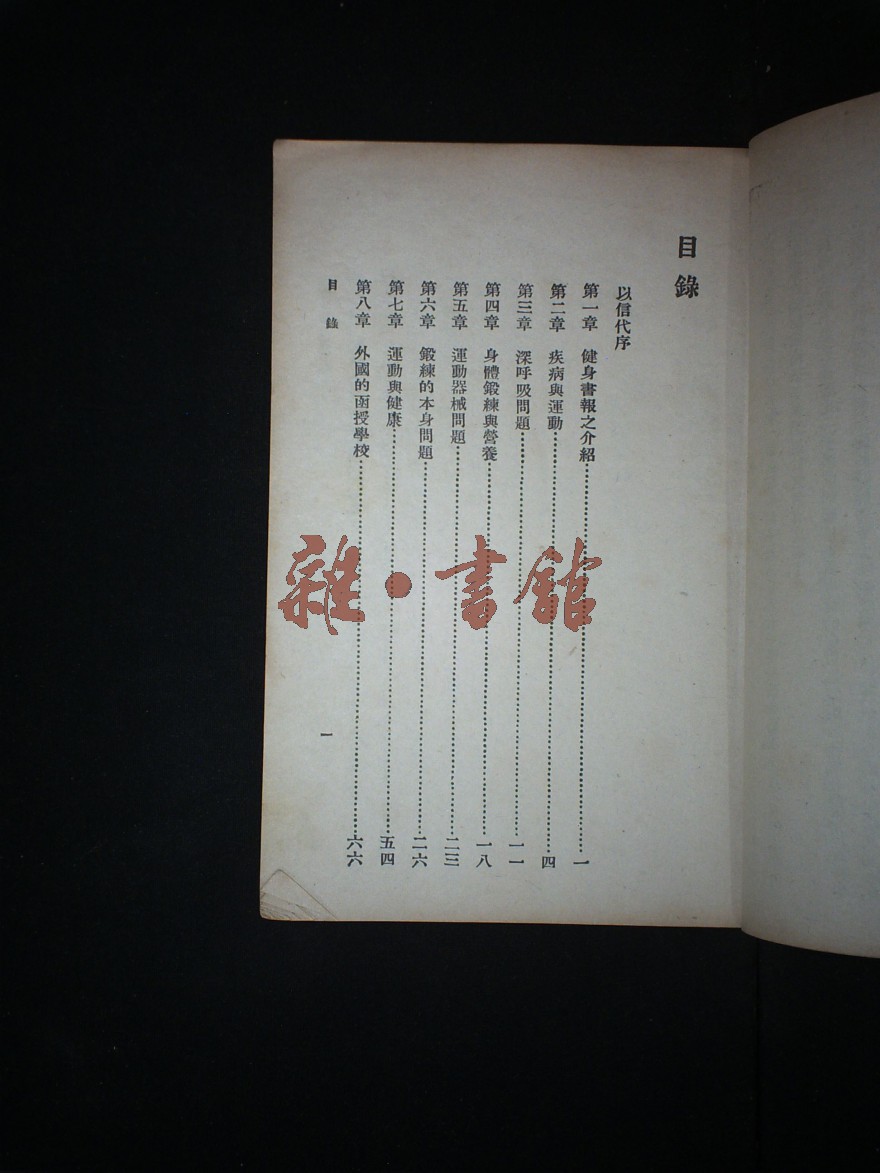 目錄
以信代序
第一章　健身書報之介紹…………一
第二章　疾病與運動…………四
第三章　深呼吸問題…………一一
第四章　身體鍛練與營養…………一八
第五章　運動器械問題…………二三
第六章　鍛練的本身問題…………二六
第七章　運動與健康…………五四
第八章　外國的函授學校…………六六
目錄
一
雜·書館